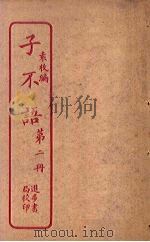 袁枚編
子不語
第二冊
進步書
局校印